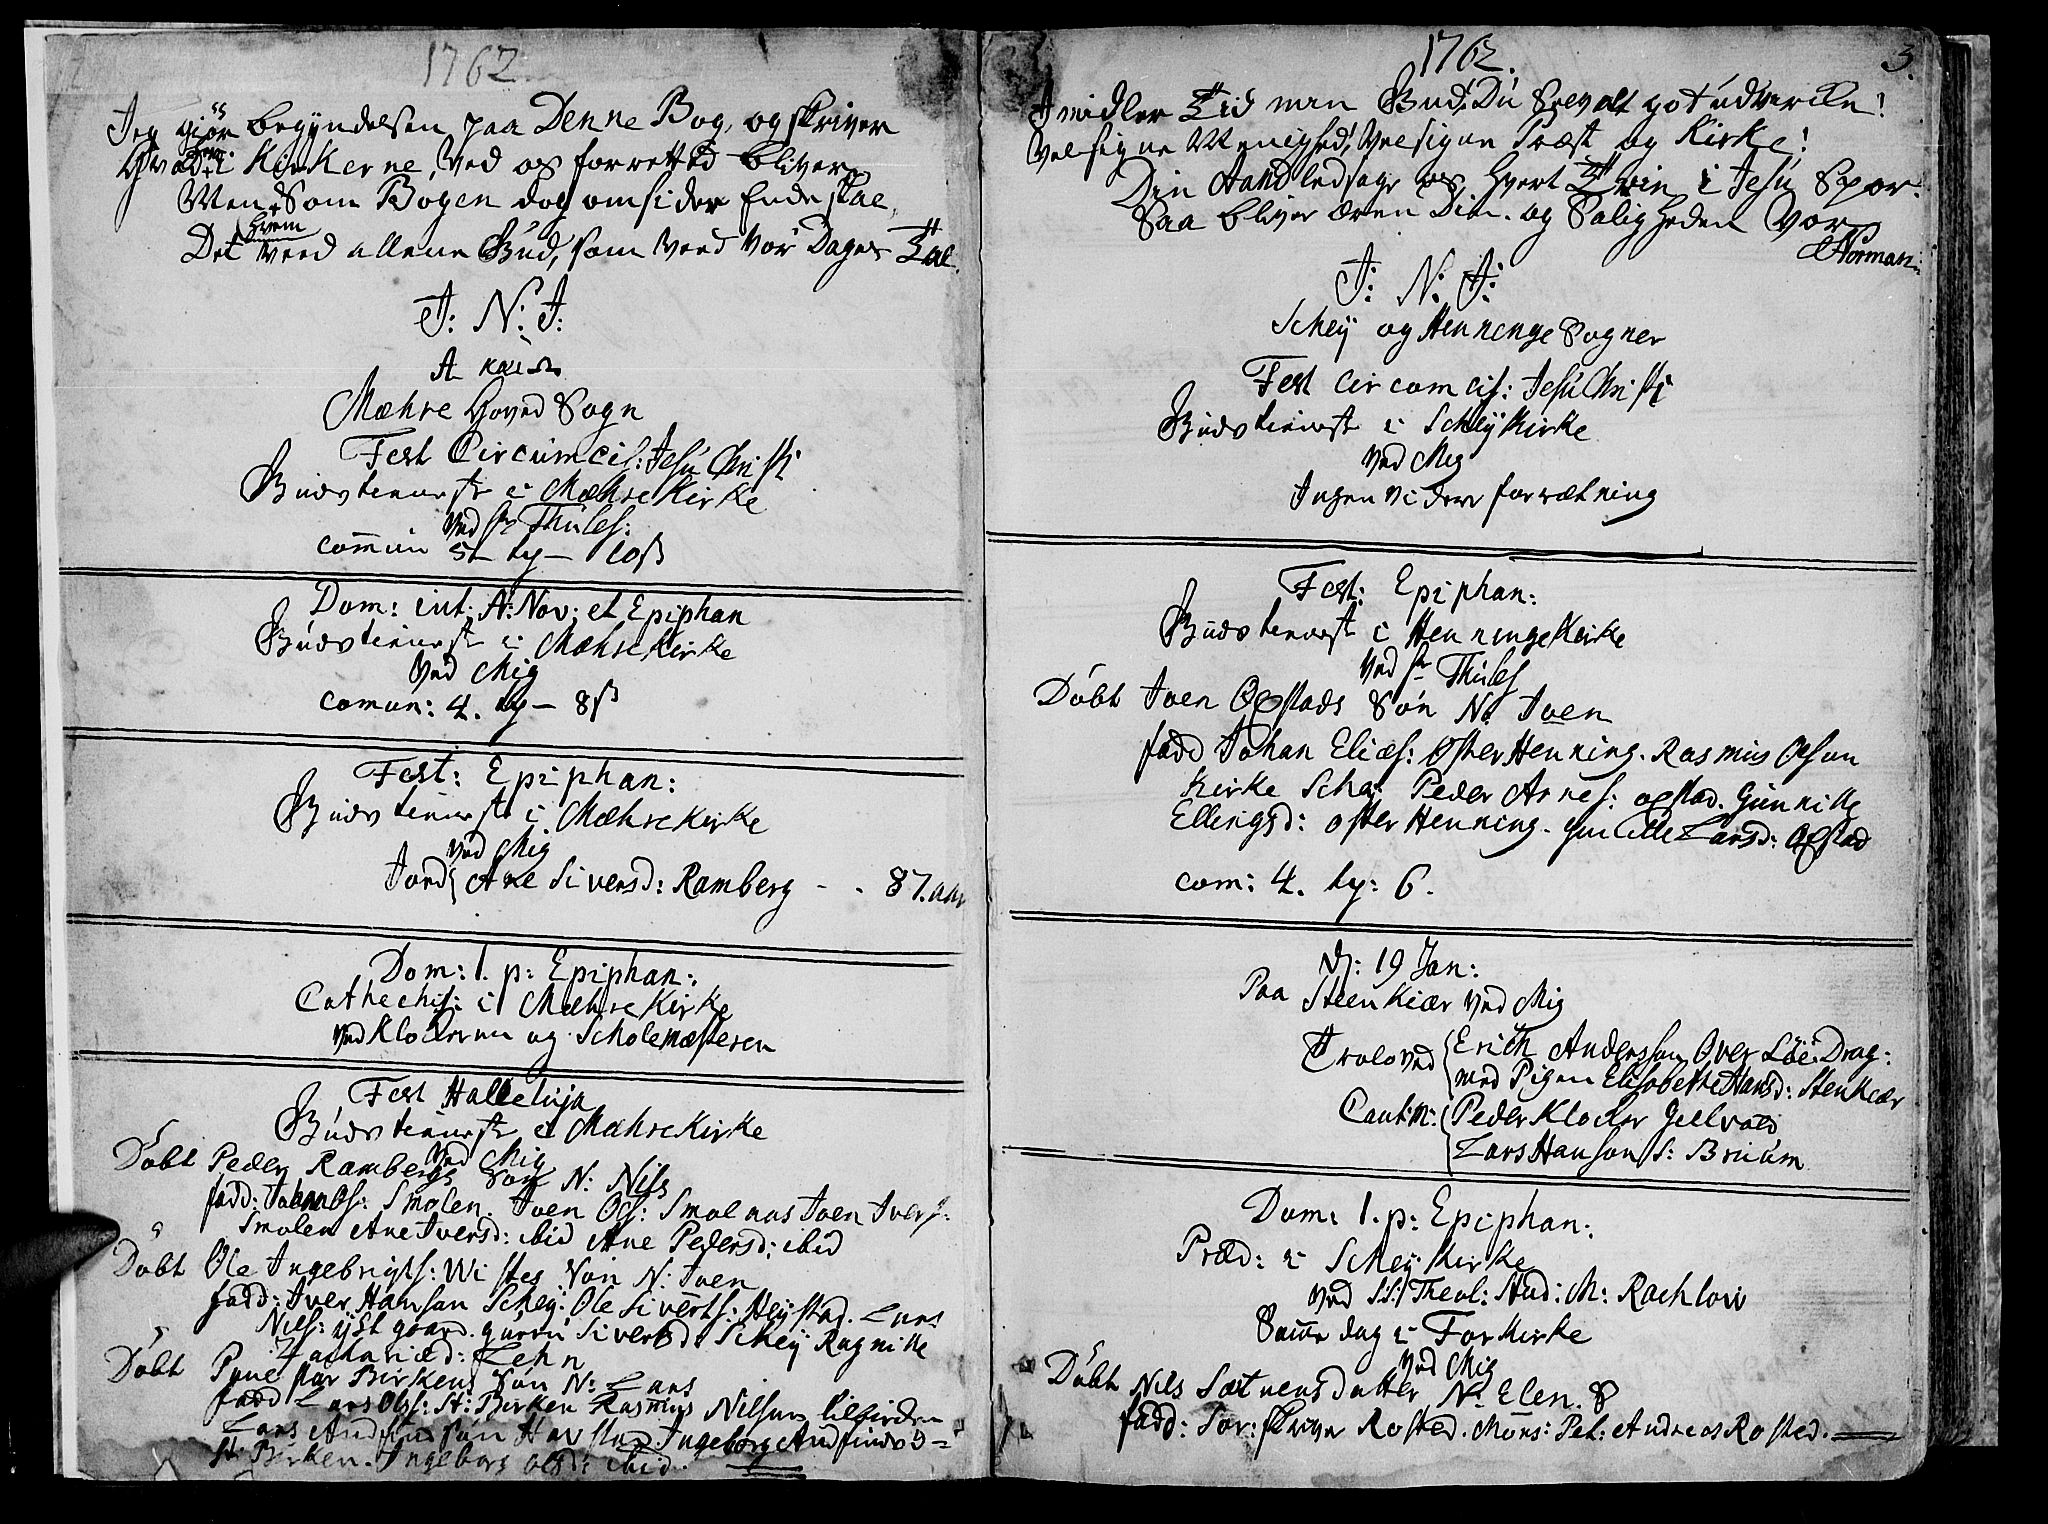 1762
Jeg giør begyndelsen paa Denne Bog, og skriver
Hvad i Kirkerne, Ved os forretted bliver
Men Som Bogen dog omsider Ende skal,
Hvem
Det veed allene Gud, som veed vor Dages Tal.
J: N: J:
Anno
Mæhre Hoved Sogn
Fest Circumcis: Jesu Christi
Gudstieneste i Mæhre Kirke
ved Hr Thules:
commun 5 ty — 10 ß
Dom: int: A: Nov: et Epiphan
Gudstieneste i Mæhre Kirke
Ved Mig
comun: 4. ty — 8 ß
Fest: Epiphan:
Gudstieneste i Mæhre Kirke
Ved Mig
Jord: Ane Siversd: Ramberg - . 87. aar
Dom: 1. p: Epiphan:
Cathechis: i Mæhre Kirke
ved Klokeren og Scholemæsteren
Fest Halleluja
Gudstieneste i Mæhre Kirke
Ved Mig
Døbt Peder Rambergs Søn N: Nils
fadd: Johan Ols: Smolen. Joen Ols: Smolnas Joen Ivers:
Smolen Ane Iversd: ibid Ane Pedersd: ibid
Døbt Ole Ingebrigts: Wistes Søn N: Joen
fadd: Iver Hansøn Schey: Ole Siverts: Heystad. Lars
Nils: yst gaard. Guru Sivertsd: Schey Ragnille
Zachariæd: Lehn
Døbt Povel Stor Birkens Søn N: Lars
fadd Lars Ols: St: Birken Rasmus Nilsen
Lars Andfindsøn Harstad Ingeborg Andfindsd=
St: Birken. Ingeborg Olsd: ibid.
1762.
3.
Imidler Tid min Gud, Du Selv alt got udvercke!
Velsigne Menighed, Velsigne Præst og Kirke!
Din Aand ledsage os, hvert Trin i Jesu Spor.
Saa bliver æren Din. og Saligheden Vor
Norman
J: N: J:
Schey og Henninge Sogner
Fest Circomcis: Jesu Christi
Gudstieneste i Schey Kirke
Ved Mig
Ingen videre forrætning
Fest: Epiphan:
Gudstieneste i Henninge Kirke
Ved Hr Thules
Døbt Joen Opstads Søn N: Joen
fadd Johan Eliæs: Øster Henning. Rasmus Olsen
Kirke Schei Peder Arnes: opstad. Gunnille
Ellingsd: øster Henning. Gunille Larsd: Opstad
com: 4. ty: 6.
D: 19 Jan:
Paa Steenkiær ved Mig
Troloved Erich Anderssøn Over Löe Drag:
med Pigen Elisabethe Hansd: Stenkiær
Caut:n: Peder Kloker Gellvold
Lars Hansøn S: Bruum
Dom: 1. p: Epiphan:
Præd: i Schey Kirke
ved SS: Theol: Stud: M: Rachlow
Samme dag i For Kirke
Ved Mig
Døbt Nils Sætnens datter N: Elen.
fadd: Sor: skriver Rosted. Mons: Pet: Andreas Rosted.